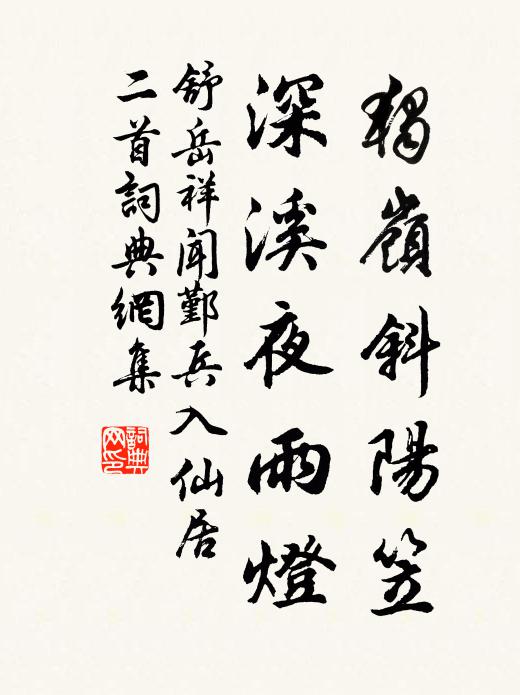 獨嶺斜陽笠
深溪夜雨燈
舒岳祥聞鄞兵入仙居
二首詞典網集
詞典
网印